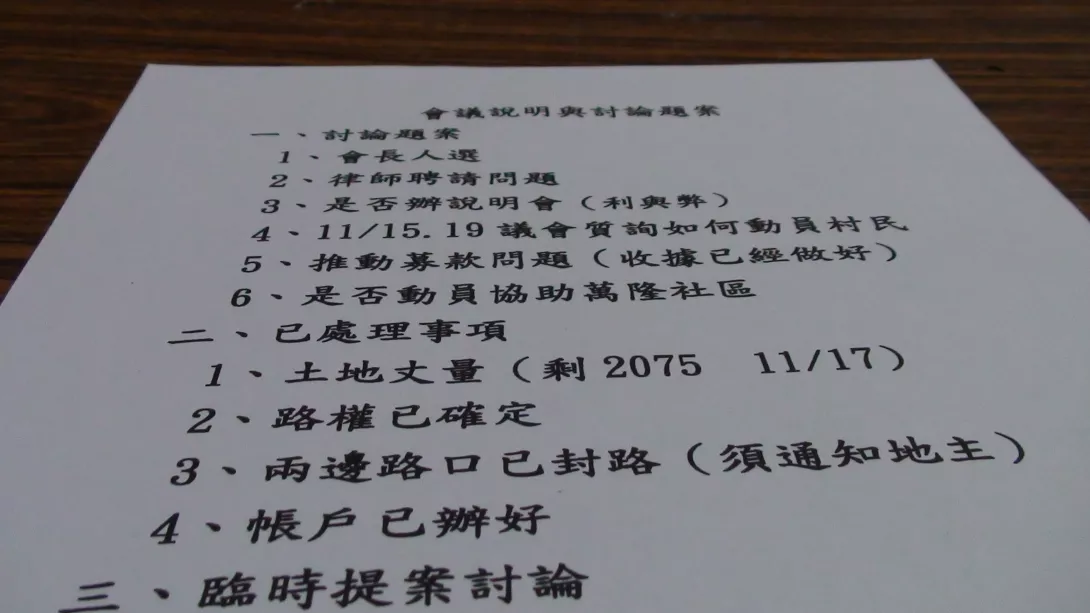 會議說明與討論題案
一、討論題案
1、會長人選
2、律師聘請問題
3、是否辦說明會（利與弊）
4、11/15.19議會質詢如何動員村民
5、推動募款問題（收據已經做好）
6、是否動員協助萬隆社區
二、已處理事項
1、土地丈量（剩2075　11/17）
2、路權已確定
3、兩邊路口已封路（須通知地主）
4、帳戶已辦好
三、臨時提案討論